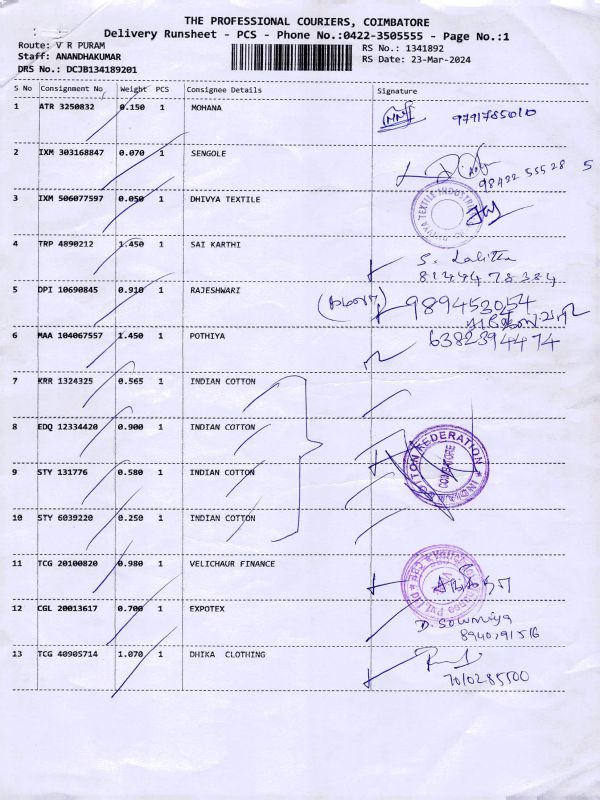 THE PROFESSIONAL COURIERS, COIMBATORE
Delivery Runsheet - PCS - Phone No.:0422-3505555 - Page No.:1
Route: V R PURAM
RS No.: 1341892
Staff: ANANDHAKUMAR
RS Date: 23-Mar-2024
DRS No.: DCJB134189201
S No Consignment No Weight PCS Consignee Details Signature
1 ATR 3250832 0.150 1 MOHANA 9791785010
2 IXM 303168847 0.070 1 SENGOLE 98422 55528 5
3 IXM 506077597 0.050 1 DHIVYA TEXTILE
4 TRP 4890212 1.450 1 SAI KARTHI S. Lalitha
8144478384
5 DPI 10690845 0.910 1 RAJESHWARI 989453054
6 MAA 104067557 1.450 1 POTHIYA 6382394474
7 KRR 1324325 0.565 1 INDIAN COTTON
8 EDQ 12334420 0.900 1 INDIAN COTTON
COTTON FEDERATION
9 STY 131776 0.580 1 INDIAN COTTON
10 STY 6039220 0.250 1 INDIAN COTTON
11 TCG 20100820 0.980 1 VELICHAUR FINANCE
12 CGL 20013617 0.700 1 EXPOTEX D. Sowmiya
8940791516
13 TCG 40905714 1.070 1 DHIKA CLOTHING
7010285500